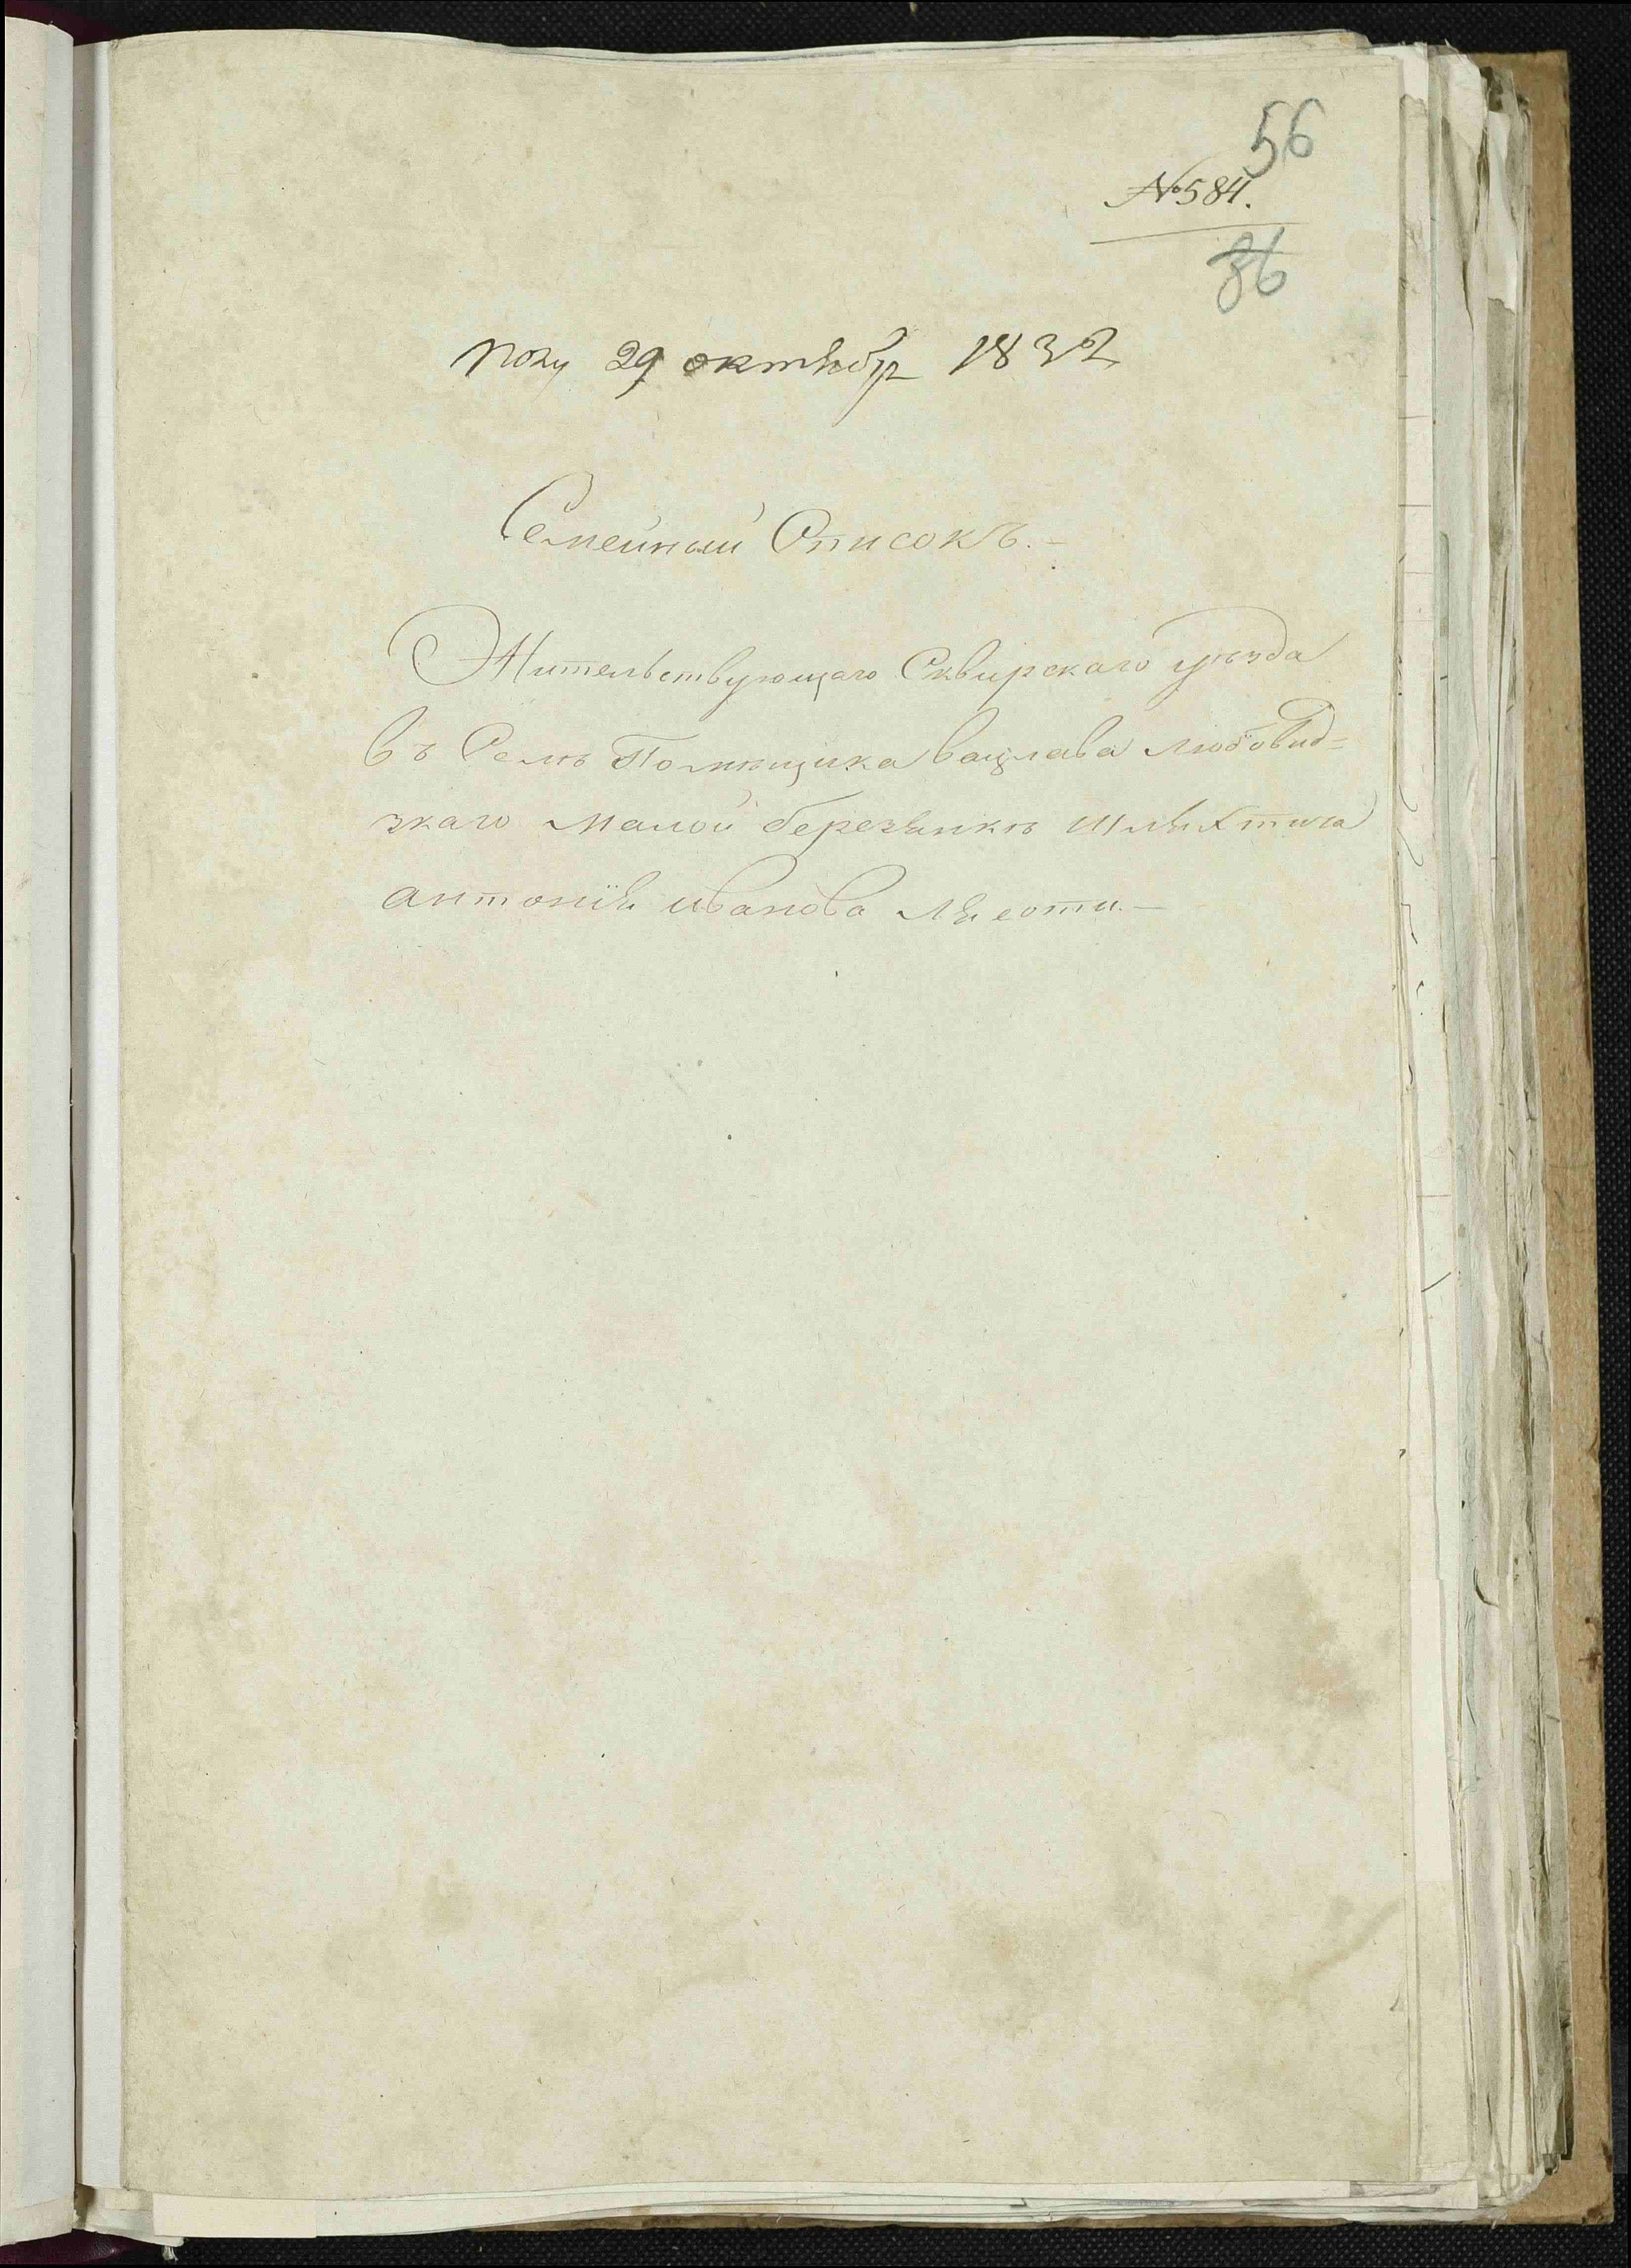 56
№ 584.
86
полу 29 октября 1832
Семейный Списокъ.-
Жительствующаго Сквирскаго уѣзда
въ Селѣ Помѣщика вацлава любовид=
зкаго малой березянкѣ Шляхтича
антонія иванова